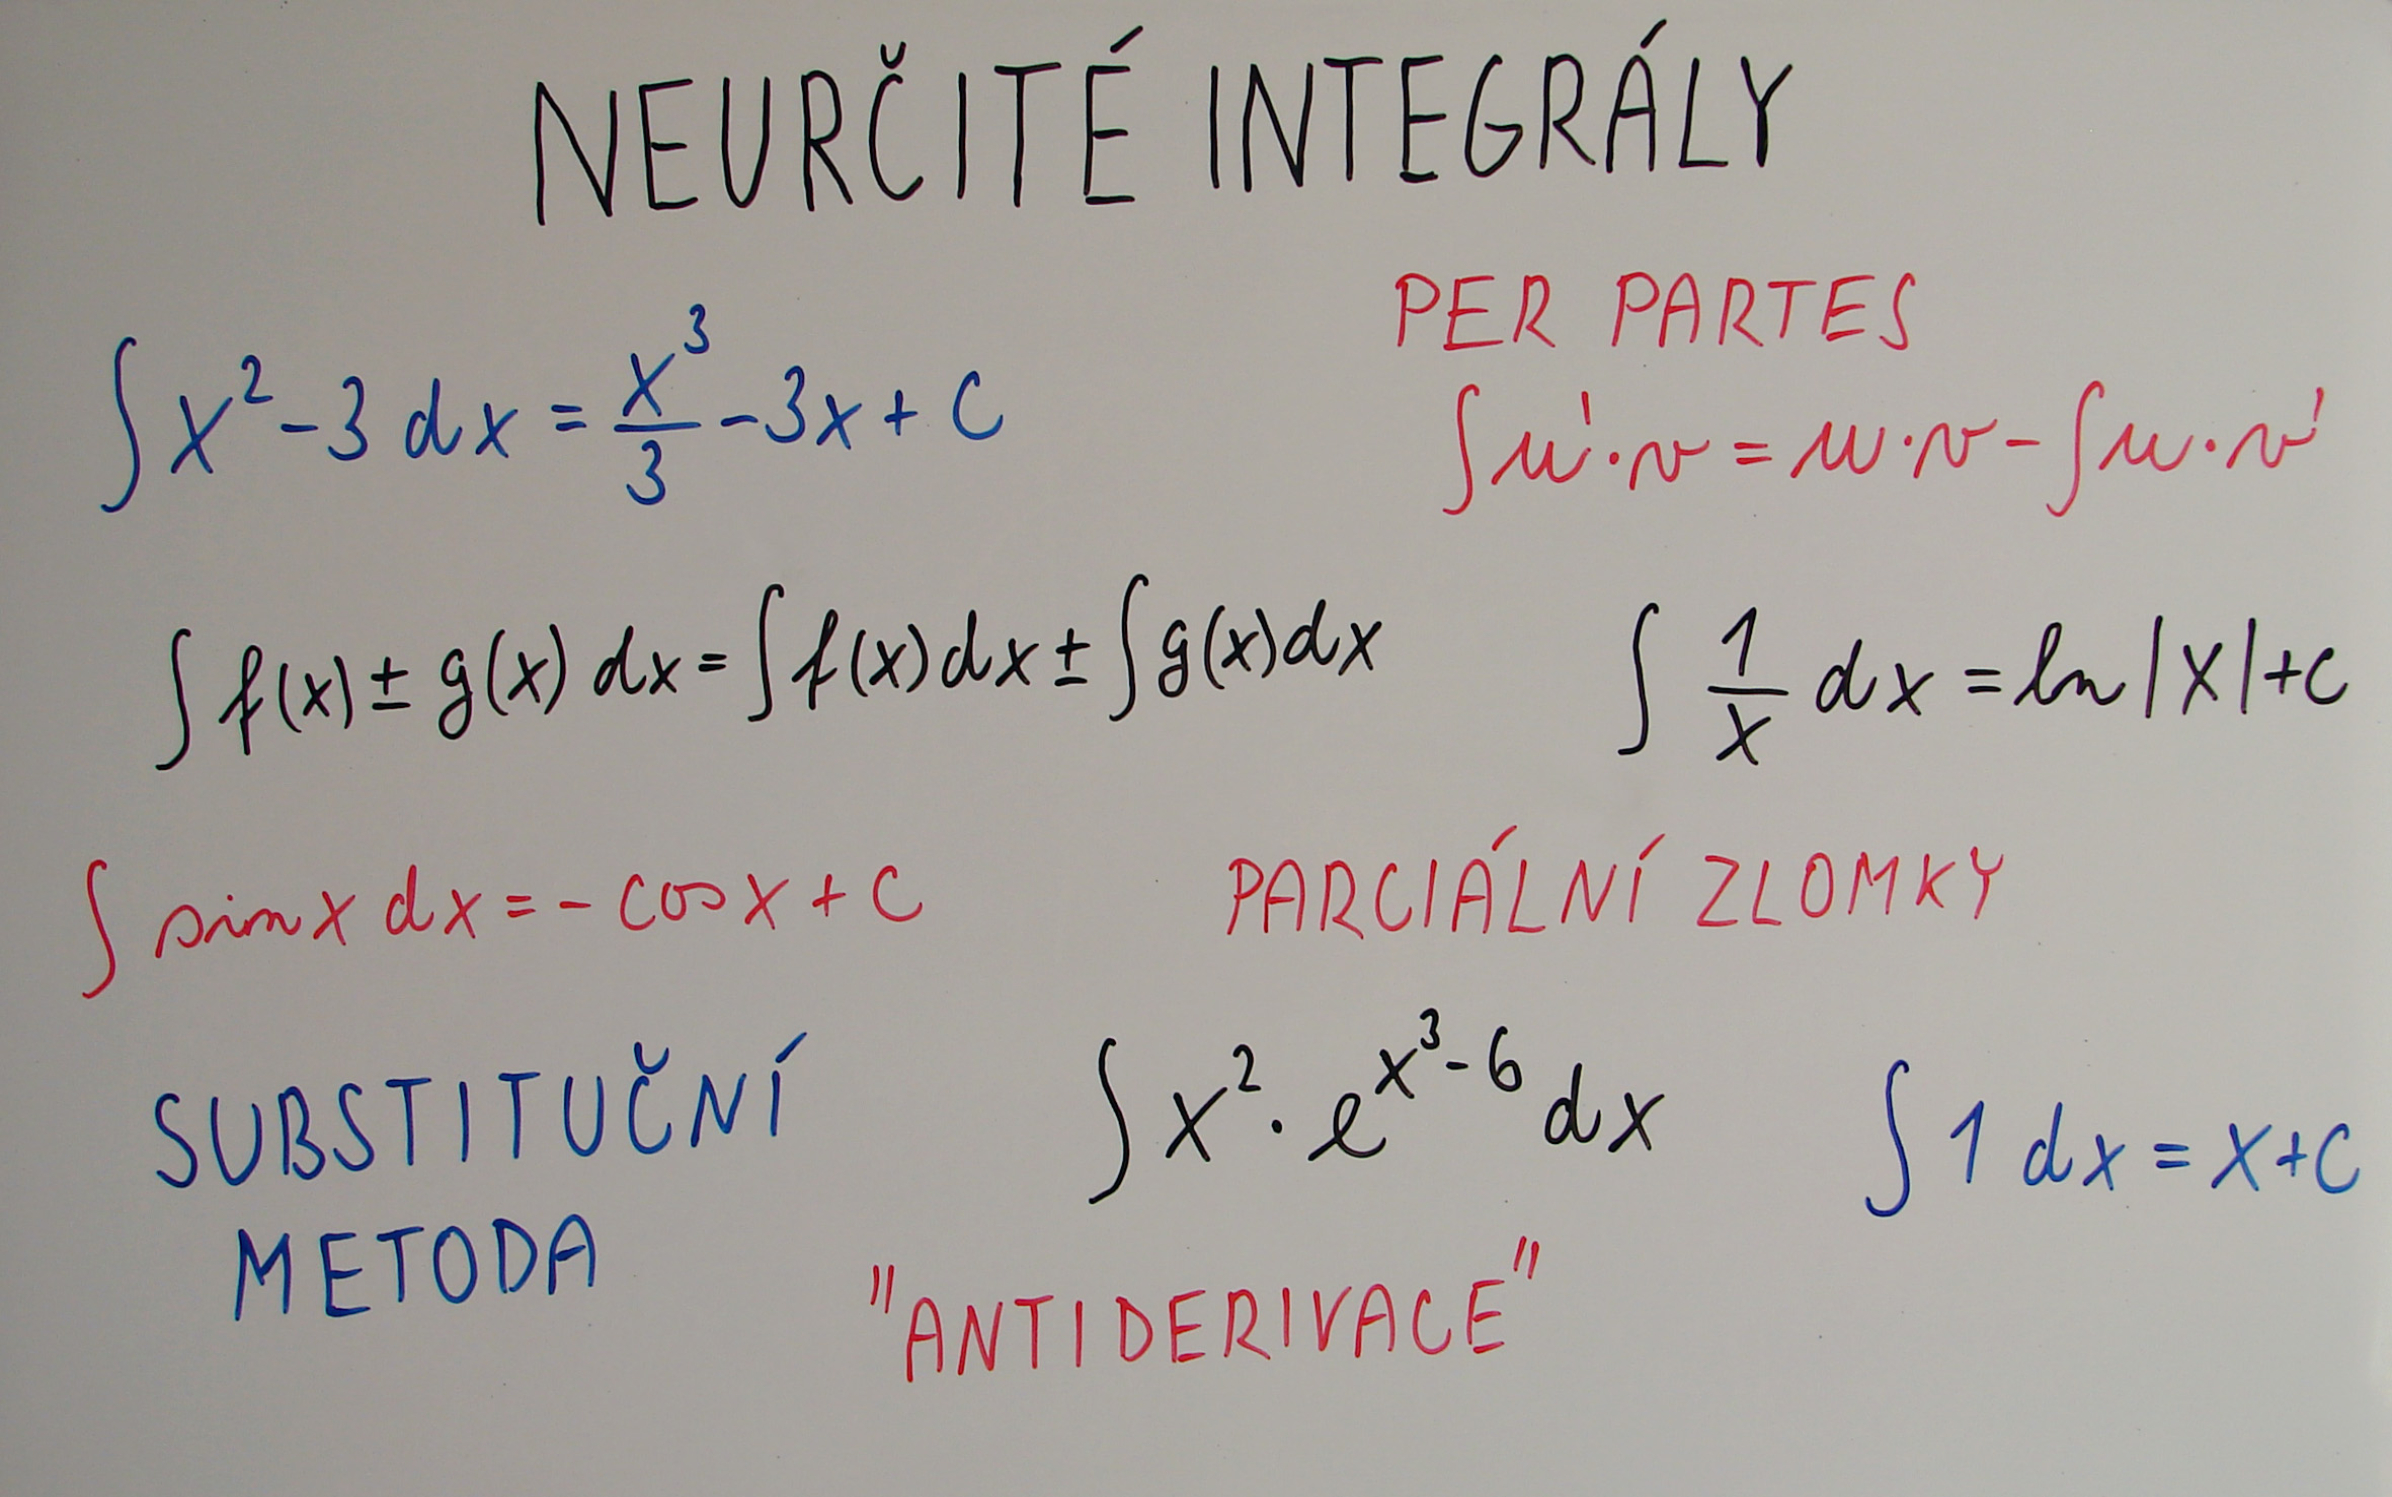 NEURČITÉ INTEGRÁLY
PER PARTES
∫ x² - 3 dx = x³/3 - 3x + C
∫ u' · v = u · v - ∫ u · v'
∫ f(x) ± g(x) dx = ∫ f(x) dx ± ∫ g(x) dx
∫ 1/x dx = ln |x| + C
∫ sin x dx = - cos x + C
PARCIÁLNÍ ZLOMKY
SUBSTITUČNÍ
METODA
∫ x² · e^(x³ - 6) dx
∫ 1 dx = x + C
"ANTIDERIVACE"